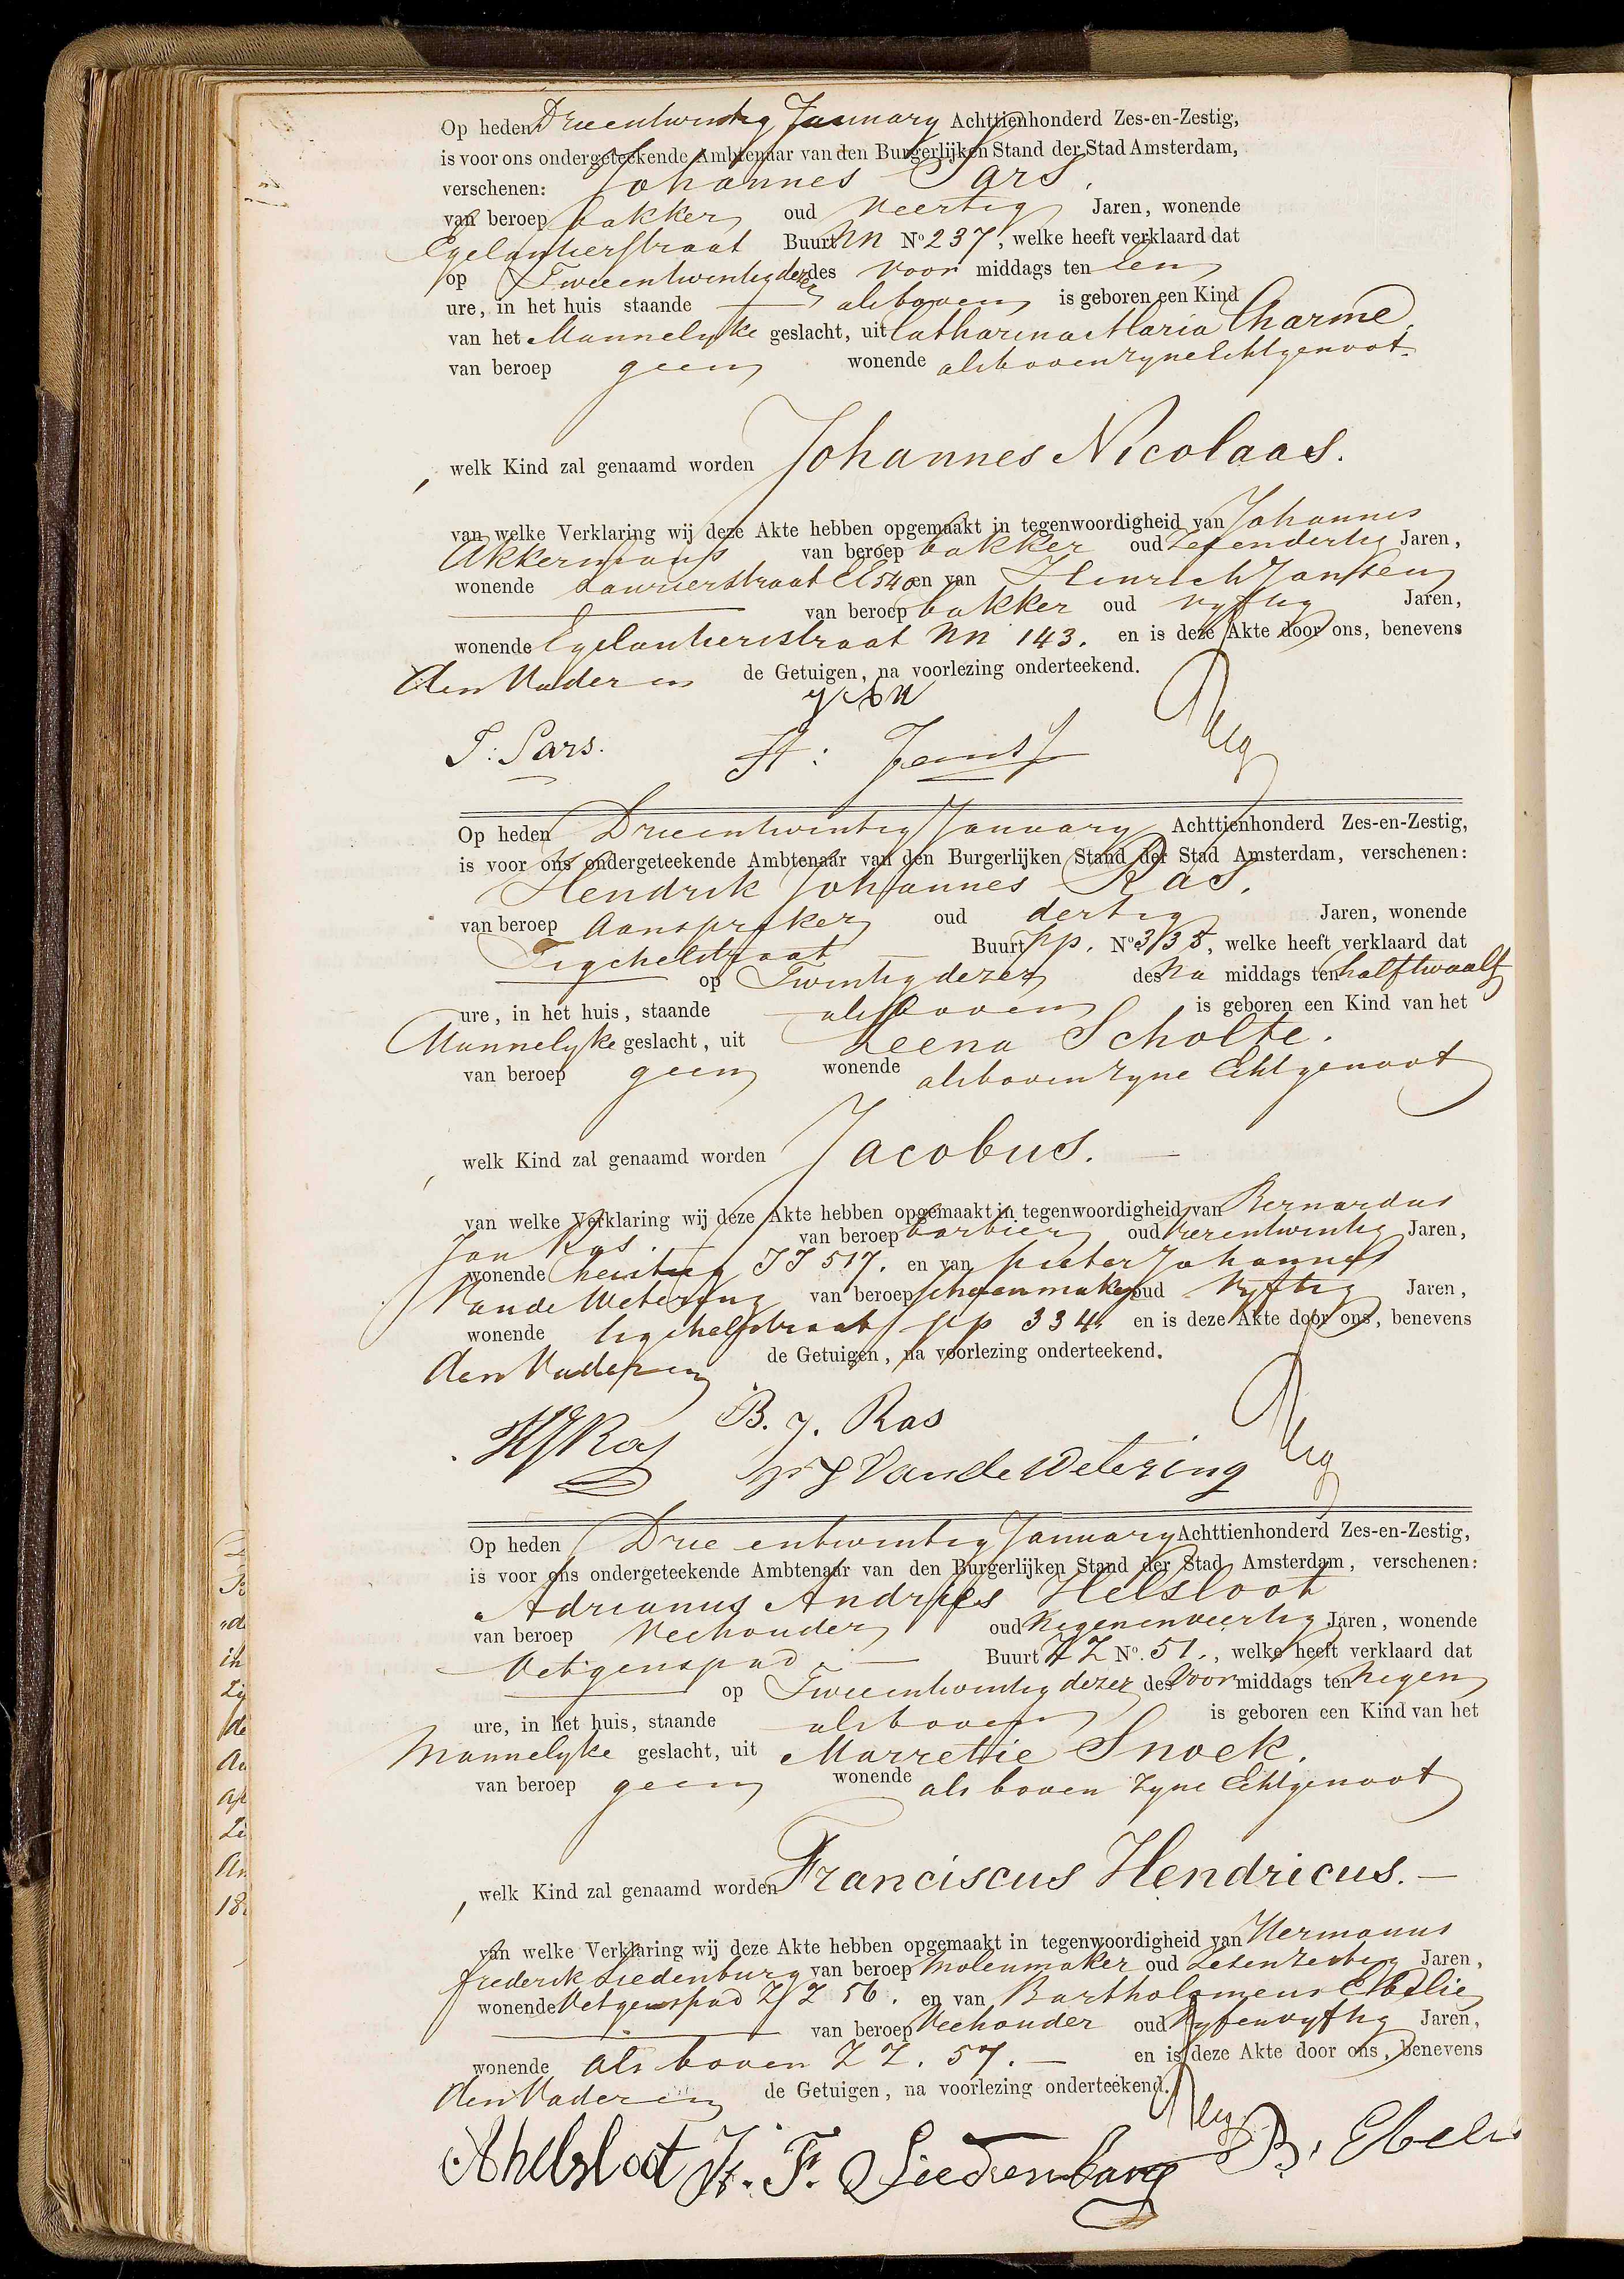 Op heden Drieentwintig January Achttienhonderd Zes-en-Zestig,
is voor ons ondergeteekende Ambtenaar van den Burgerlijken Stand der Stad Amsterdam,
verschenen: Johannes Sars,
van beroep bakker oud Veertig Jaren, wonende
Egelantierstraat Buurt NN No 237, welke heeft verklaard dat
op Tweeentwintig dezer des Voor middags ten een
ure, in het huis staande als boven is geboren een Kind
van het Mannelyke geslacht, uit Catharina Maria Charme,
van beroep geen wonende als boven zyne Echtgenoot.
, welk Kind zal genaamd worden Johannes Nicolaas.
van welke Verklaring wij deze Akte hebben opgemaakt in tegenwoordigheid van Johannes
Akkermans van beroep bakker oud Zesendertig Jaren,
wonende Laurierstraat 540 en van Hinrich Jansen
van beroep bakker oud vyftig Jaren,
wonende Egelantierstraat NN 143. en is deze Akte door ons, benevens
den Vader en de Getuigen, na voorlezing onderteekend.
J: Sars. H:
Op heden Drieentwintig January Achttienhonderd Zes-en-Zestig,
is voor ons ondergeteekende Ambtenaar van den Burgerlijken Stand der Stad Amsterdam, verschenen:
Hendrik Johannes Ras,
van beroep Aanspreker oud dertig Jaren, wonende
Tigchelstraat Buurt pp. No. 335, welke heeft verklaard dat
op Twintig dezer des Na middags ten half twaalf
ure, in het huis, staande als boven is geboren een Kind van het
Mannelyke geslacht, uit Leena Scholte.
van beroep geen wonende als boven zyne Echtgenoot
, welk Kind zal genaamd worden Jacobus. —
van welke Verklaring wij deze Akte hebben opgemaakt in tegenwoordigheid van Bernardus
Jan Ras. van beroep barbier oud Vierentwintig Jaren,
wonende heisteeg JJ 517. en van pieter Johannes
Vande Wetering van beroep schoenmaker oud Vyftig Jaren,
wonende tigchelstraat pp 334. en is deze Akte door ons, benevens
den Vader en de Getuigen, na voorlezing onderteekend.
HJ Ras B. J. Ras
P J Van de Wetering
Op heden Drie entwintig January Achttienhonderd Zes-en-Zestig,
is voor ons ondergeteekende Ambtenaar van den Burgerlijken Stand der Stad Amsterdam, verschenen:
Adrianus Andries Helsloot
van beroep Veehouder oud Negenenveertig Jaren, wonende
Vetgenspad. — Buurt ZZ No. 51., welke heeft verklaard dat
op Tweeentwintig dezer des Voor middags ten Negen
ure, in het huis, staande als boven is geboren een Kind van het
Mannelyke geslacht, uit Marretie Snoek.
van beroep geen wonende als boven zyne Echtgenoot
, welk Kind zal genaamd worden Franciscus Hendricus. —
van welke Verklaring wij deze Akte hebben opgemaakt in tegenwoordigheid van Hermanus
frederik Liedenburg van beroep Molenmaker oud Zesenzestig Jaren,
wonende Vetgenspad ZZ 56. en van Bartholomeus Ebelie
van beroep Veehouder oud Vyfenvyftig Jaren,
wonende als boven ZZ. 57. — en is deze Akte door ons, benevens
den Vader en de Getuigen, na voorlezing onderteekend.
AHelsloot H. F. Liedenburg B. Ebeli